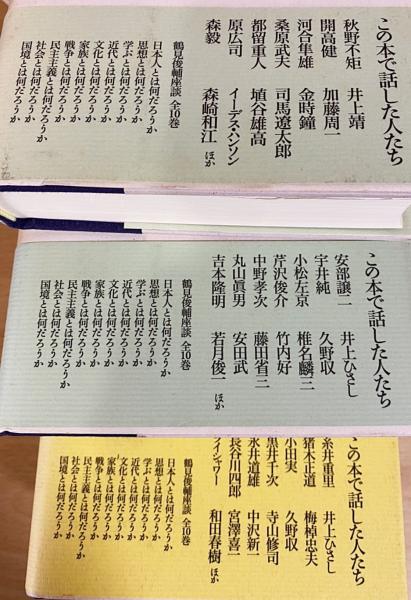 この本で話した人たち
秋野不矩 井上靖
開高健 加藤周一
河合隼雄 金時鐘
桑原武夫 司馬遼太郎
都留重人 埴谷雄高
原広司 イーデス・ハンソン
森毅 森崎和江 ほか
鶴見俊輔座談 全10巻
日本人とは何だろうか
思想とは何だろうか
学ぶとは何だろうか
近代とは何だろうか
文化とは何だろうか
家族とは何だろうか
戦争とは何だろうか
民主主義とは何だろうか
社会とは何だろうか
国境とは何だろうか
この本で話した人たち
安部譲二 井上ひさし
宇井純 久野収
小松左京 椎名麟三
芹沢俊介 竹内好
中野孝次 藤田省三
丸山眞男 安田武
吉本隆明 若月俊一 ほか
鶴見俊輔座談 全10巻
日本人とは何だろうか
思想とは何だろうか
学ぶとは何だろうか
近代とは何だろうか
文化とは何だろうか
家族とは何だろうか
戦争とは何だろうか
民主主義とは何だろうか
社会とは何だろうか
国境とは何だろうか
この本で話した人たち
糸井重里 井上ひさし
猪木正道 梅棹忠夫
小田実 久野収
黒井千次 寺山修司
永井道雄 中沢新一
長谷川四郎 宮澤喜一
和田春樹 ほか
鶴見俊輔座談 全10巻
日本人とは何だろうか
思想とは何だろうか
学ぶとは何だろうか
近代とは何だろうか
文化とは何だろうか
家族とは何だろうか
戦争とは何だろうか
民主主義とは何だろうか
社会とは何だろうか
国境とは何だろうか